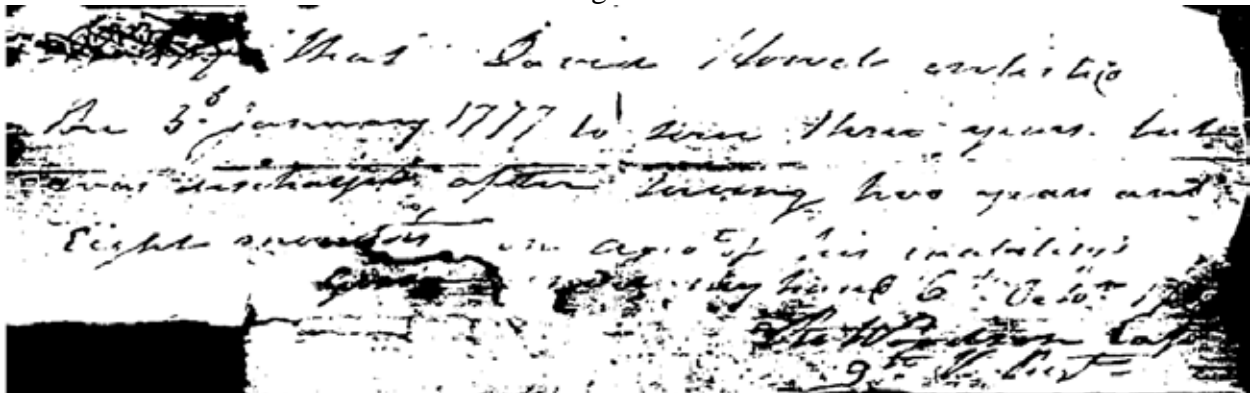 that David Howel enlisted
the 3.d january 1777 to serve three years. but
was discharged after serving two years and
Eight months on acot of his inability
Given under my hand 6th Octor
Woodson Capt
9th V. Regt